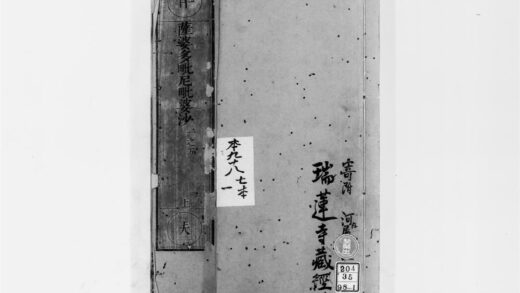 薩婆多毗尼毗婆沙
大
本九十八
七本
一
寄附
瑞蓮寺藏經
204
35
98-1